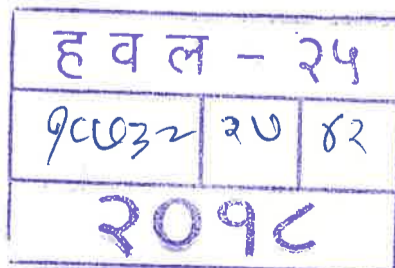 ह व ल - २५
१८७३२ २७ ४२
२०१८